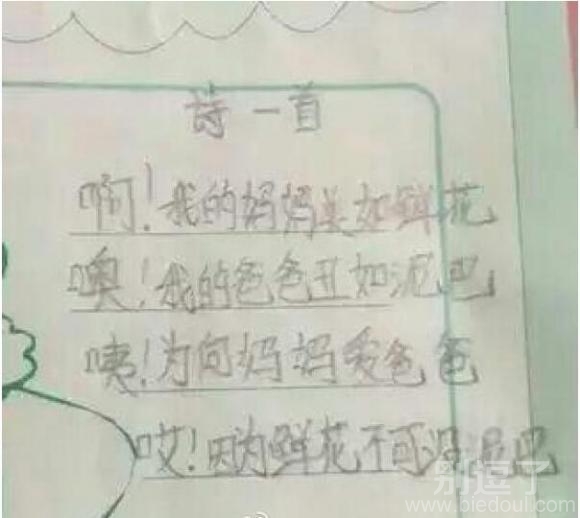 诗一首
啊!我的妈妈美如鲜花
噢!我的爸爸丑如泥巴
咦!为何妈妈爱爸爸
哎!因为鲜花不可没泥巴
别逗了
www.biedoul.com